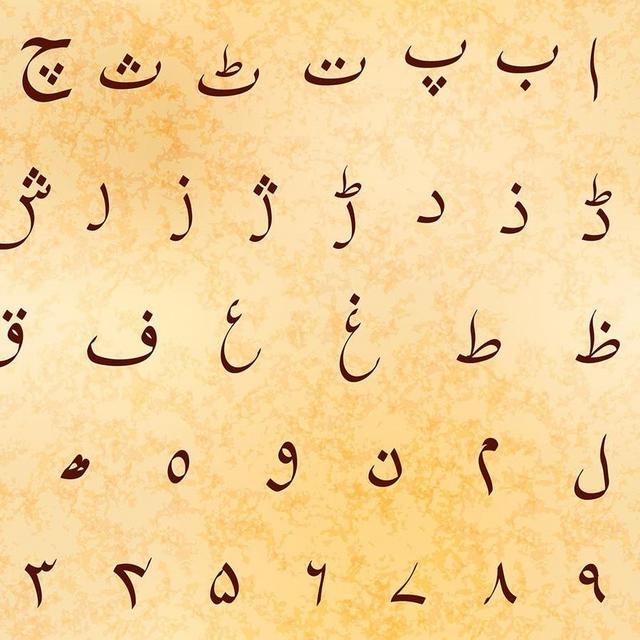 ا ب پ ت ٹ ث چ
ڈ ذ د ڑ ژ ز ر ش
ظ ط غ ع ف ق
ل م ن و ہ ھ
۹ ۸ ۷ ۶ ۵ ۴ ۳